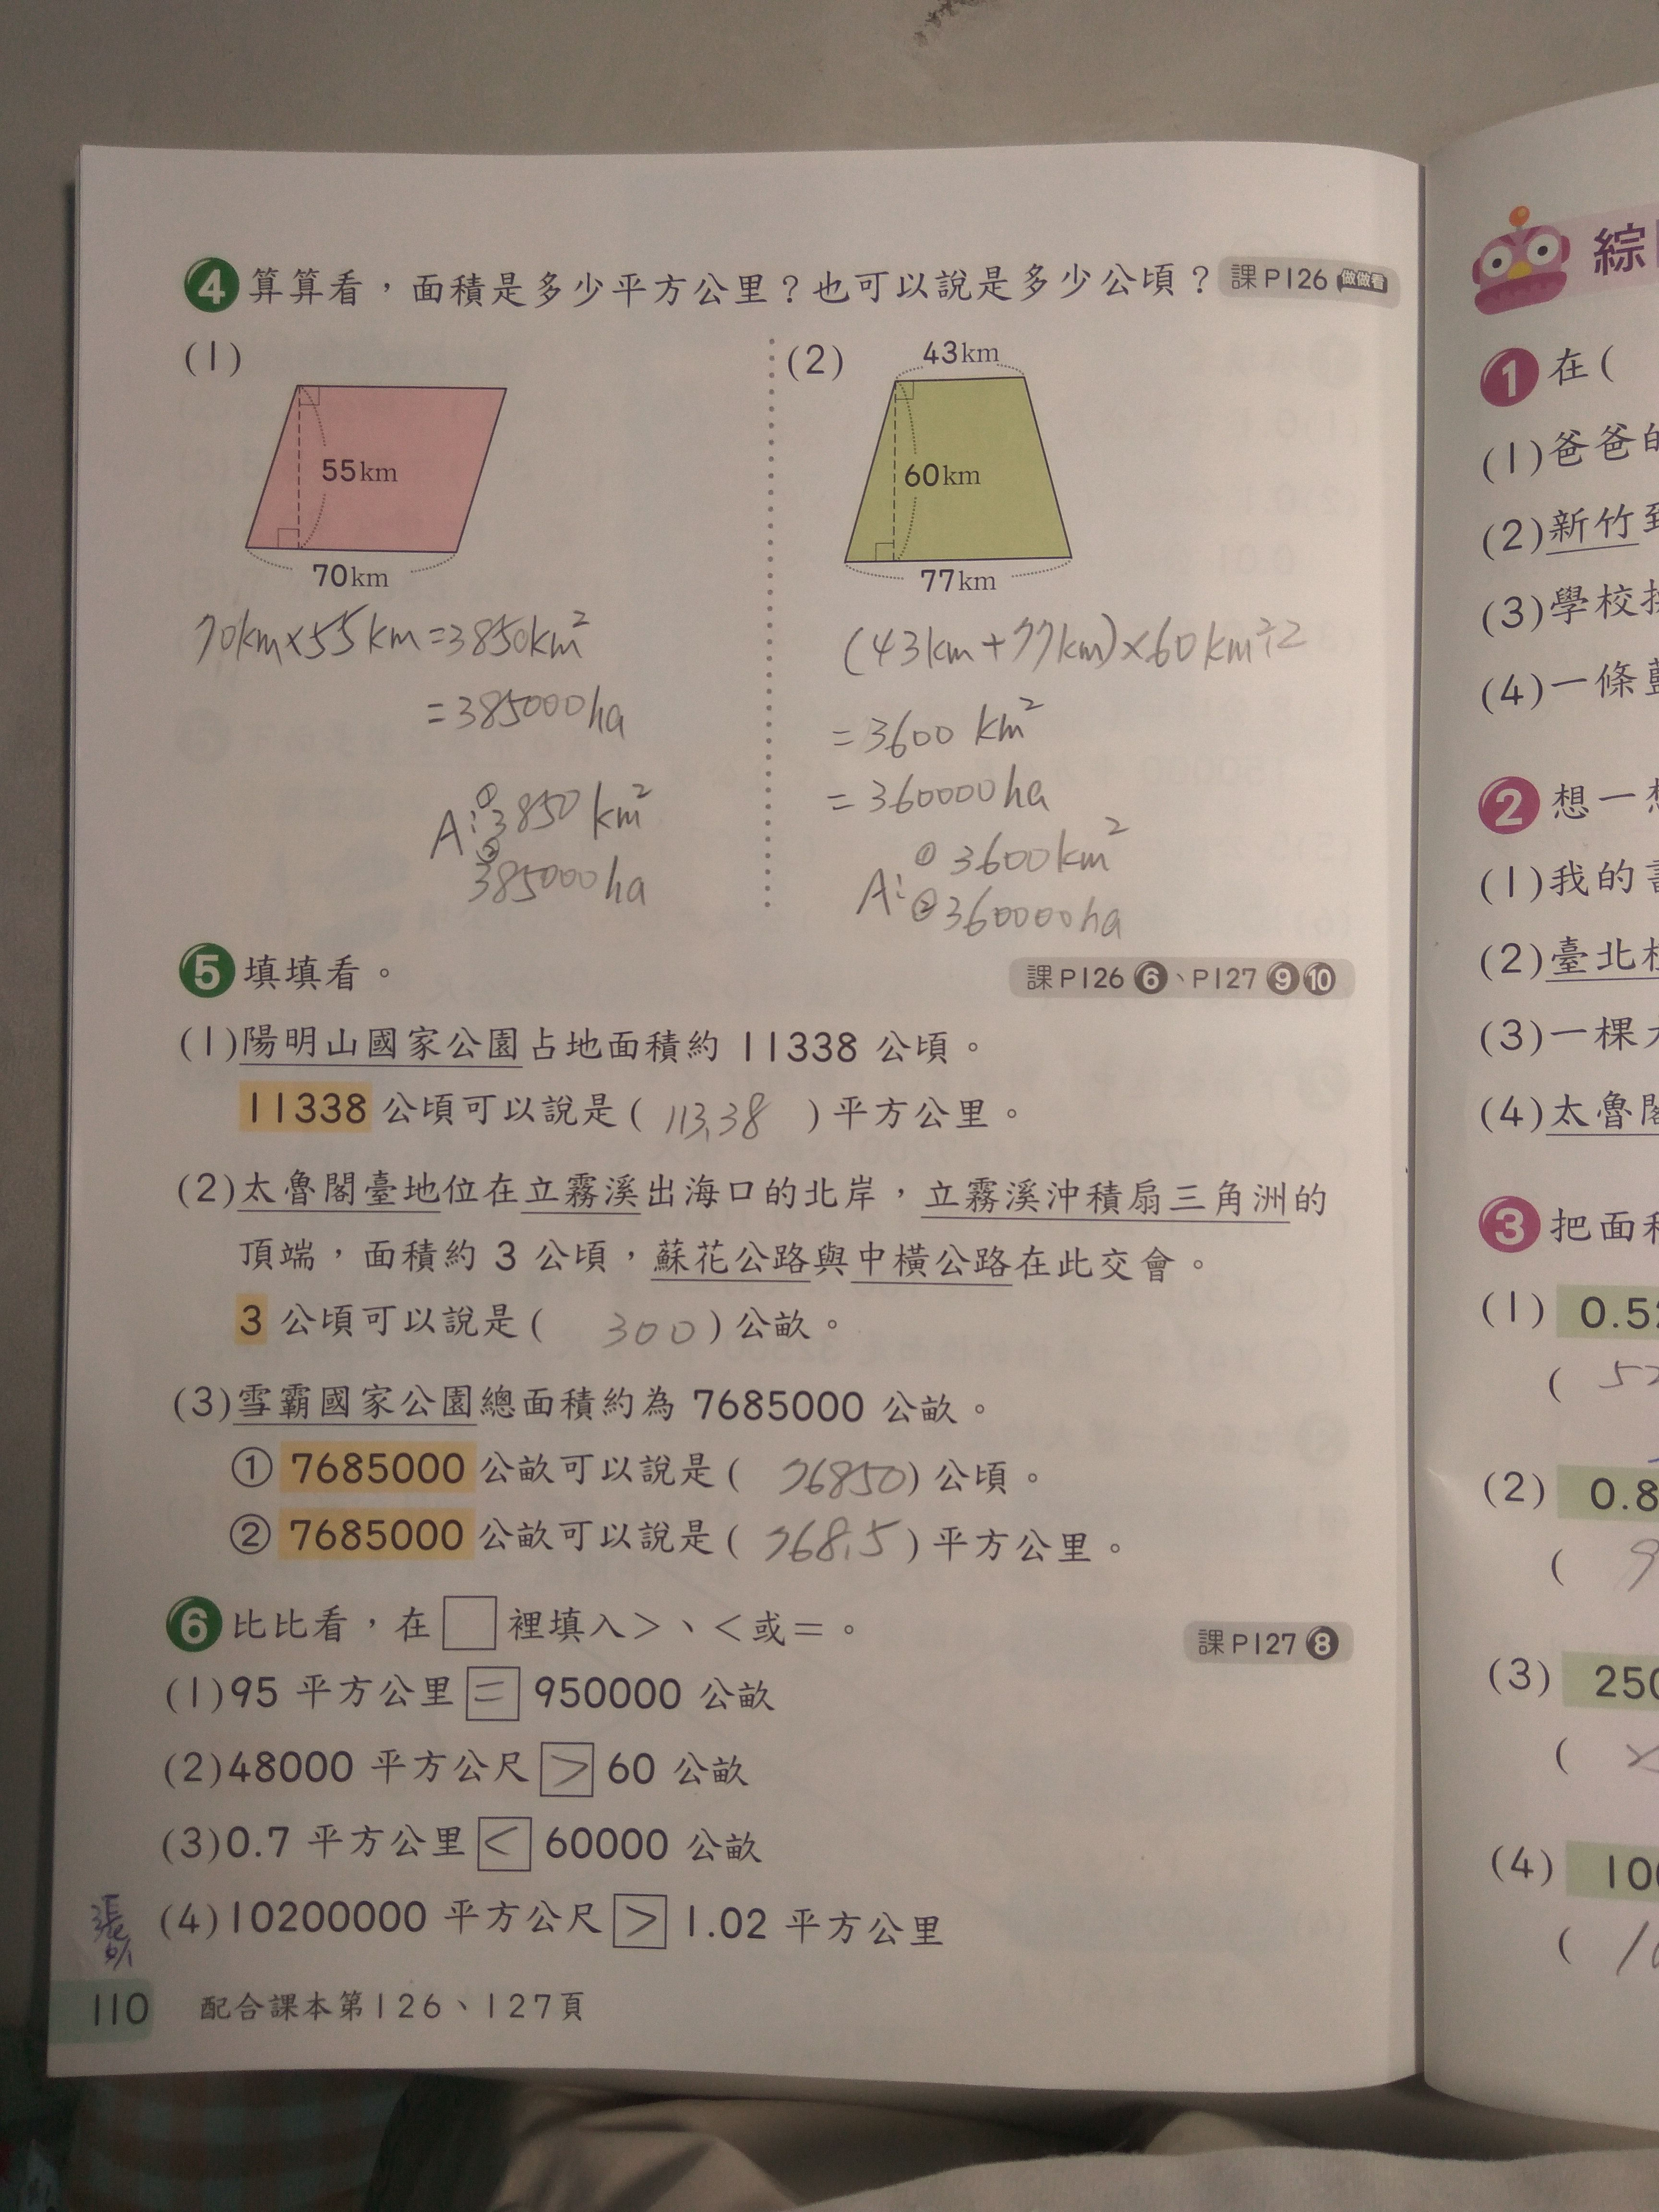 4 算算看，面積是多少平方公里？也可以說是多少公頃？ 課P126 做做看
(1)
55km
70km
70km×55km=3850km²
=385000ha
A:①3850km²
②385000ha
(2)
43km
60km
77km
(43km+77km)×60km÷2
=3600km²
=360000ha
A:①3600km²
②360000ha
5 填填看。 課P126 6、P127 9 10
(1)陽明山國家公園占地面積約 11338 公頃。
11338 公頃可以說是( 113.38 )平方公里。
(2)太魯閣臺地位在立霧溪出海口的北岸，立霧溪沖積扇三角洲的
頂端，面積約 3 公頃，蘇花公路與中橫公路在此交會。
3 公頃可以說是( 300 )公畝。
(3)雪霸國家公園總面積約為 7685000 公畝。
① 7685000 公畝可以說是( 76850 )公頃。
② 7685000 公畝可以說是( 768.5 )平方公里。
6 比比看，在□裡填入>、<或=。 課P127 8
(1)95 平方公里 = 950000 公畝
(2)48000 平方公尺 > 60 公畝
(3)0.7 平方公里 < 60000 公畝
(4)10200000 平方公尺 > 1.02 平方公里
110 配合課本第126、127頁
綜
1 在(
(1)爸爸的
(2)新竹到
(3)學校
(4)一條
2 想一想
(1)我的
(2)臺北
(3)一棵
(4)太魯閣
3 把面積
(1) 0.5
( 52
(2) 0.8
( 9
(3) 250
(
(4) 100
( 10